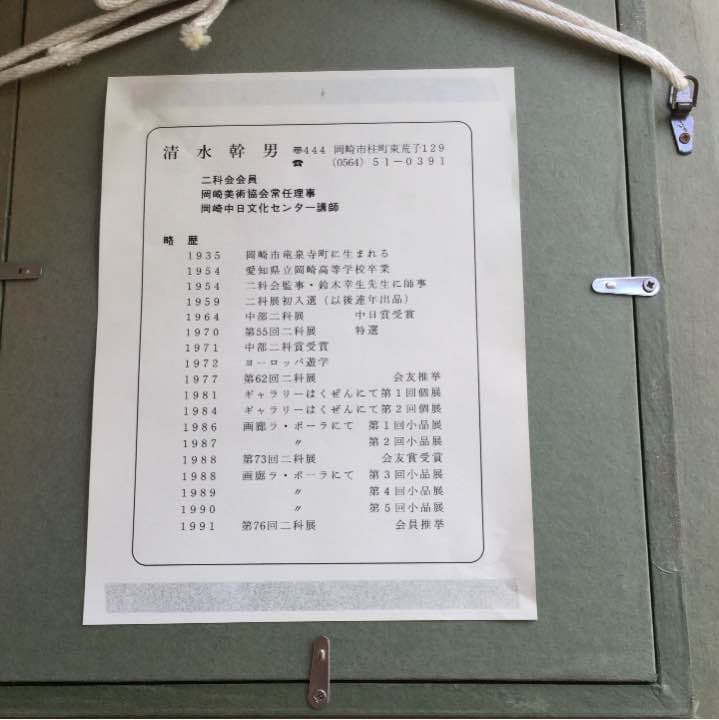 清水幹男 〒444 岡崎市柱町東荒子129
☎ (0564) 51-0391
二科会会員
岡崎美術協会常任理事
岡崎中日文化センター講師
略歴
1935 岡崎市竜泉寺町に生まれる
1954 愛知県立岡崎高等学校卒業
1954 二科会監事・鈴木幸生先生に師事
1959 二科展初入選(以後連年出品)
1964 中部二科展 中日賞受賞
1970 第55回二科展 特選
1971 中部二科賞受賞
1972 ヨーロッパ遊学
1977 第62回二科展 会友推挙
1981 ギャラリーはくぜんにて第1回個展
1984 ギャラリーはくぜんにて第2回個展
1986 画廊ラ・ポーラにて 第1回小品展
1987 〃 第2回小品展
1988 第73回二科展 会友賞受賞
1988 画廊ラ・ポーラにて 第3回小品展
1989 〃 第4回小品展
1990 〃 第5回小品展
1991 第76回二科展 会員推挙